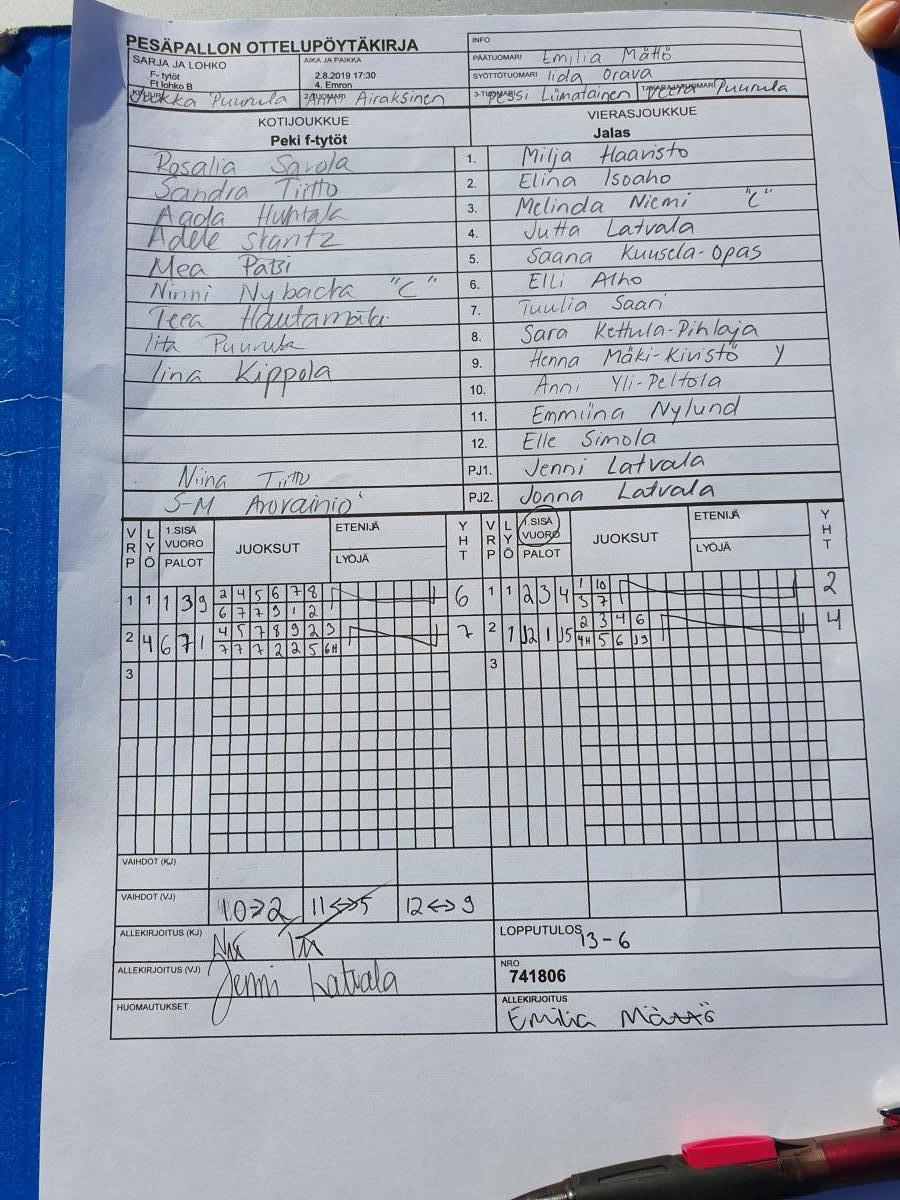 PESÄPALLON OTTELUPÖYTÄKIRJA
INFO
SARJA JA LOHKO
F- tytöt
Ft lohko B
AIKA JA PAIKKA
2.8.2019 17:30
4. Emron
PÄÄTUOMARI Emilia Mättö
SYÖTTÖTUOMARI Iida Orava
Jukka Puurula
2-TUOMARI Airaksinen
3-TUOMARI Pessi Liimatainen
TAKARAJATUOMARI Veera Puurula
KOTIJOUKKUE
Peki f-tytöt
VIERASJOUKKUE
Jalas
Rosalia Savola 1. Milja Haavisto
Sandra Tirtto 2. Elina Isoaho
Huhtala 3. Melinda Niemi "C"
Adele Stantz 4. Jutta Latvala
Mea Patsi 5. Saana Kuusela-Opas
Ninni Nybacka "C" 6. Elli Alho
Teea Hautamäki 7. Tuulia Saari
Iita Puurula 8. Sara Kettula-Pihlaja
Iina Kippola 9. Henna Mäki-Kivistö Y
10. Anni Yli-Peltola
11. Emmiina Nylund
12. Elle Simola
Niina Tirtto PJ1. Jenni Latvala
S-M Arovainio PJ2. Jonna Latvala
VRP LYÖ 1.SISÄ VUORO PALOT JUOKSUT ETENIJÄ LYÖJÄ YHT VRP LYÖ 1.SISÄ VUORO PALOT JUOKSUT ETENIJÄ LYÖJÄ YHT
1 1 1 3 9 2 4 5 6 7 8 6 1 1 2 3 4 1 10 2
6 7 7 9 1 2 3 7
2 4 6 7 1 4 5 7 8 9 2 3 7 2 1 J2 1 J5 2 3 4 6 4
7 7 7 2 2 5 6H 4H 5 6 J9
3 3
VAIHDOT (KJ)
VAIHDOT (VJ) 10→2 11↔5 12↔9
ALLEKIRJOITUS (KJ)
LOPPUTULOS 13-6
ALLEKIRJOITUS (VJ) Jenni Latvala
NRO
741806
HUOMAUTUKSET
ALLEKIRJOITUS
Emilia Mättö